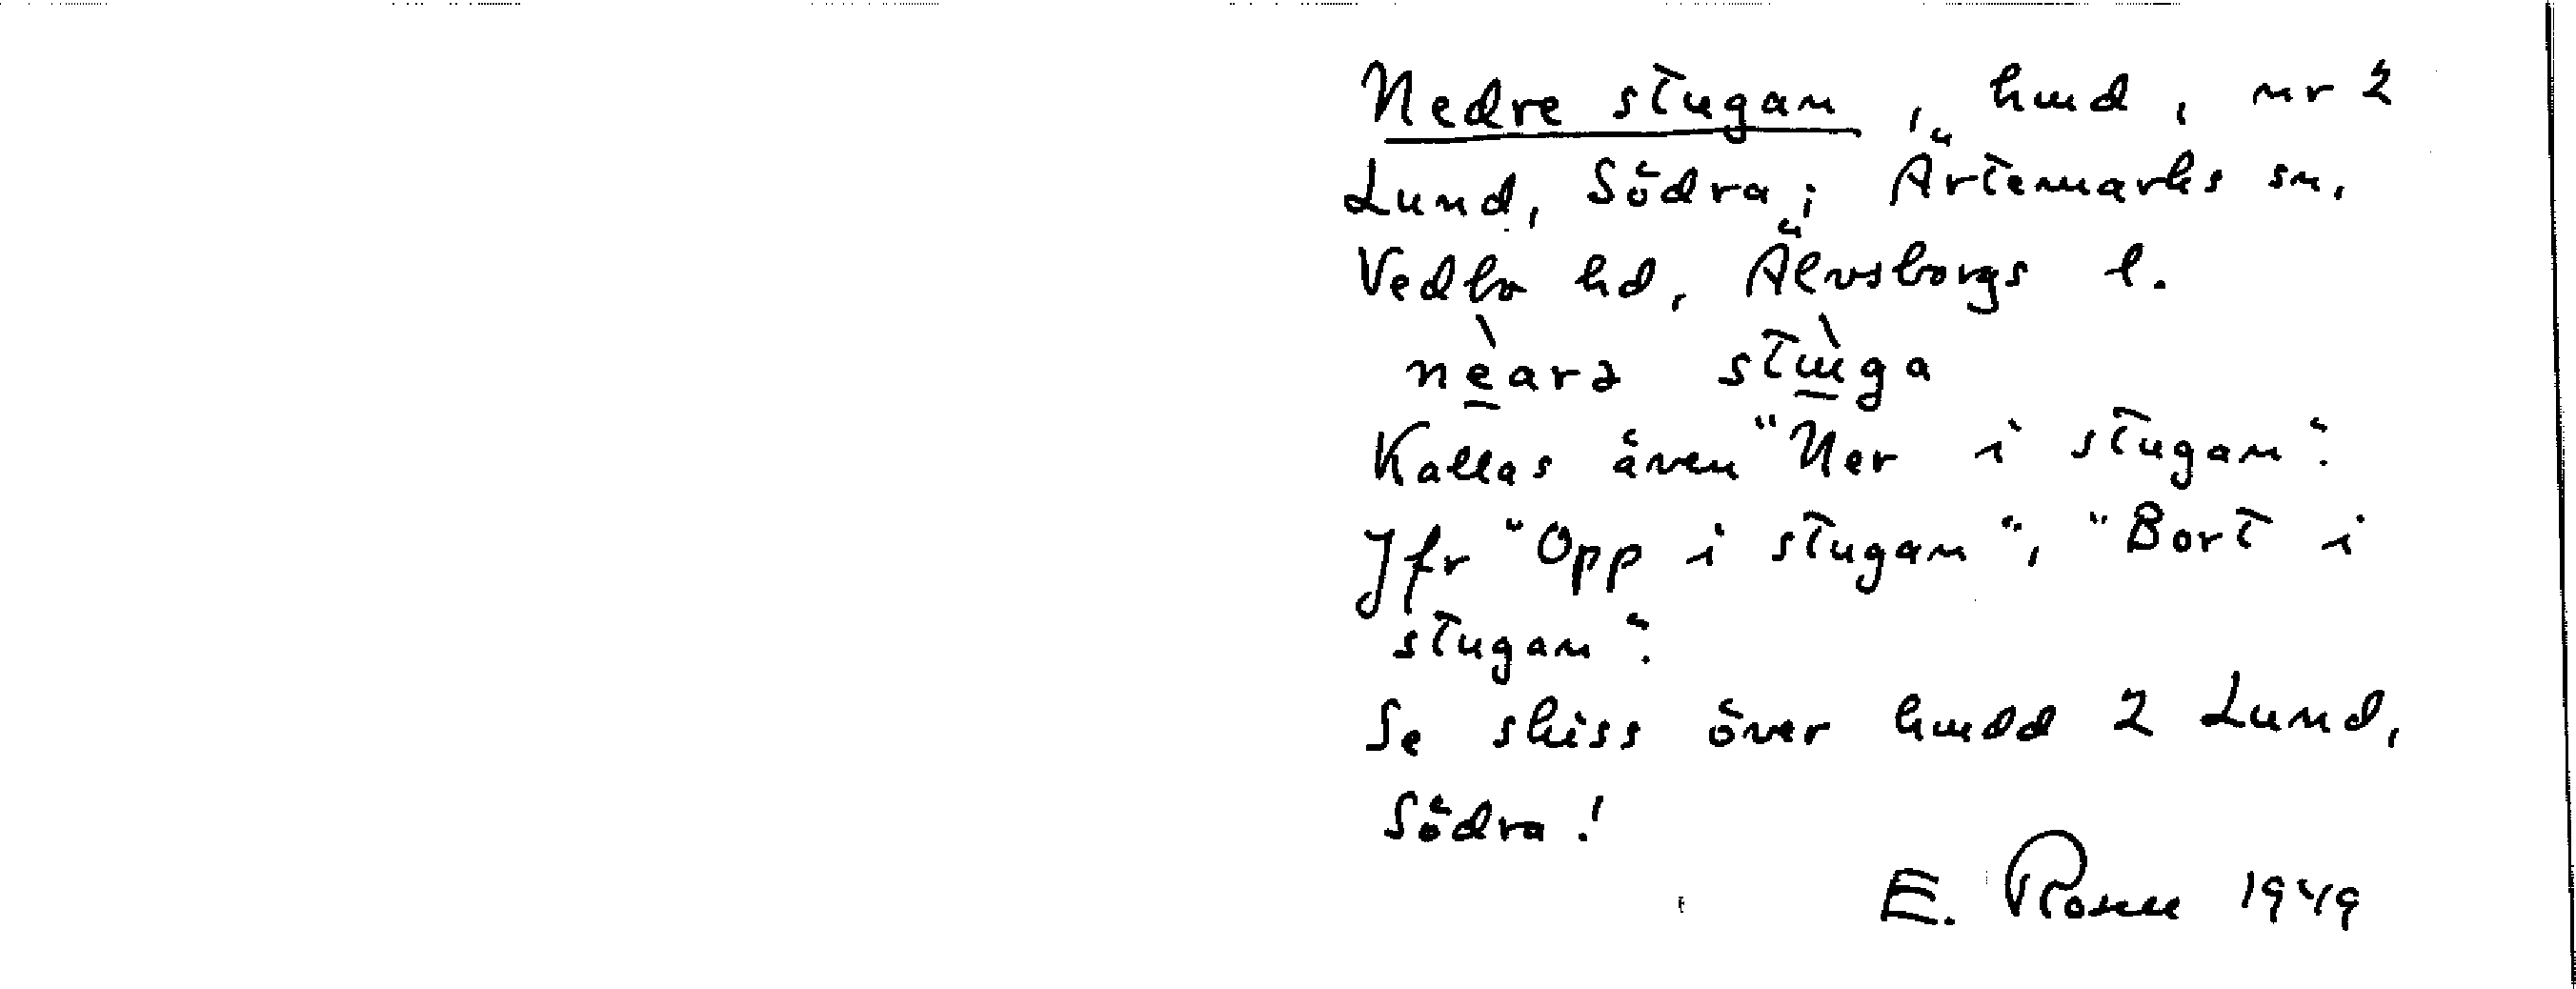 Nedre stugan, hmd, nr 2
Lund, Södra; Ärtemarks sn,
Vedbo hd, Älvsborgs l.
nèarə stùga
Kallas även "Ner i stugan".
Jfr "Opp i stugan", "Bort i
stugan".
Se skiss över hmdd 2 Lund,
Södra!
E. Rosen 1949